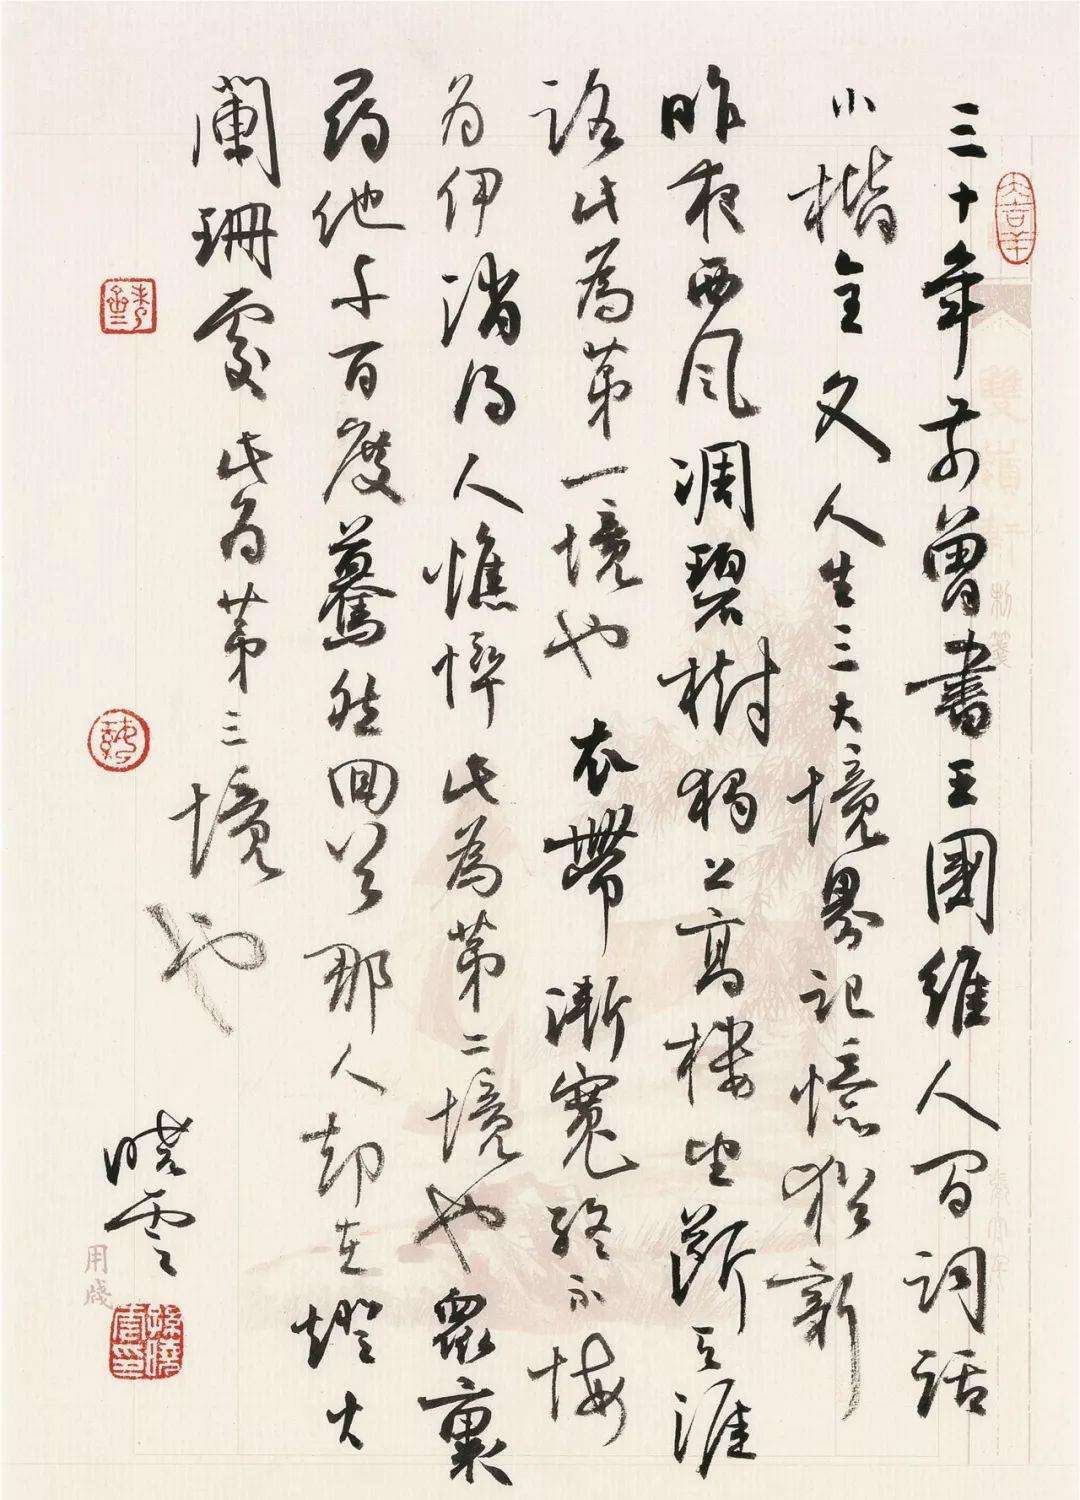 三十年前曾書王國維人間詞話
小楷全文人生三大境界記憶猶新
昨夜西風凋碧樹獨上高樓望斷天涯
路此為第一境也衣帶漸寬終不悔
为伊消得人憔悴此為第二境也眾裏
尋他千百度驀然回首那人却在燈火
闌珊處此为第三境也
晓雲
用箋
孫曉雲印
大吉羊